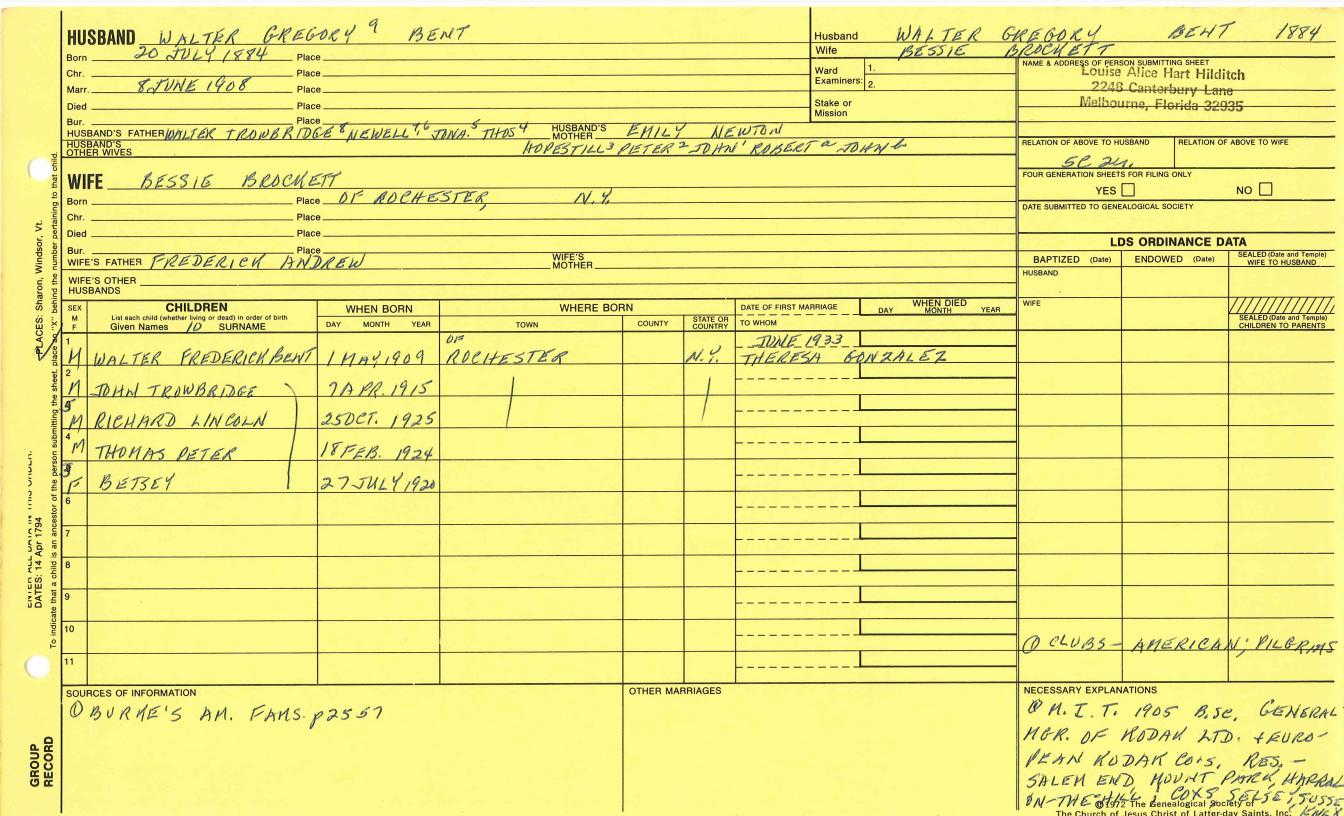 HUSBAND WALTER GREGORY 9 BENT
Born 20 JULY 1884 Place
Chr. Place
Marr. 8 JUNE 1908 Place
Died Place
Bur. Place
HUSBAND'S FATHER WALTER TROWBRIDGE 8 NEWELL 7,6 JONA. 5 THOS 4 HUSBAND'S MOTHER EMILY NEWTON
HUSBAND'S OTHER WIVES HOPESTILL 3 PETER 2 JOHN 1 ROBERT a JOHN b
WIFE BESSIE BROCKETT
Born Place OF ROCHESTER, N.Y.
Chr. Place
Died Place
Bur. Place
WIFE'S FATHER FREDERICK ANDREW WIFE'S MOTHER
WIFE'S OTHER HUSBANDS
Husband WALTER GREGORY BENT 1884
Wife BESSIE BROCKETT
Ward Examiners: 1.
2.
Stake or Mission
NAME & ADDRESS OF PERSON SUBMITTING SHEET
Louise Alice Hart Hilditch
2246 Canterbury Lane
Melbourne, Florida 32935
RELATION OF ABOVE TO HUSBAND RELATION OF ABOVE TO WIFE
FOUR GENERATION SHEETS FOR FILING ONLY
YES NO
DATE SUBMITTED TO GENEALOGICAL SOCIETY
LDS ORDINANCE DATA
BAPTIZED (Date) ENDOWED (Date) SEALED (Date and Temple) WIFE TO HUSBAND
HUSBAND
WIFE
SEALED (Date and Temple) CHILDREN TO PARENTS
SEX M F
CHILDREN
List each child (whether living or dead) in order of birth
Given Names 10 SURNAME
WHEN BORN
DAY MONTH YEAR
WHERE BORN
TOWN COUNTY STATE OR COUNTRY
DATE OF FIRST MARRIAGE
TO WHOM
WHEN DIED
DAY MONTH YEAR
1 OF JUNE 1933
M WALTER FREDERICK BENT 1 MAY 1909 ROCHESTER N.Y. THERESA GONZALEZ
2
M JOHN TROWBRIDGE 7 APR. 1915
5
M RICHARD LINCOLN 25 OCT. 1925
4
M THOMAS PETER 18 FEB. 1924
3
F BETSEY 27 JULY 1920
6
7
8
9
10
11
① CLUBS - AMERICAN; PILGRIMS
SOURCES OF INFORMATION
① BURKE'S AM. FAMS. p2557
OTHER MARRIAGES
NECESSARY EXPLANATIONS
① M.I.T. 1905 B.SC. GENERAL
MGR. OF KODAK LTD. + EURO-
PEAN KODAK COS. RES. -
SALEM END MOUNT PARK, HARRAL
ON-THE-HILL;
©1972 The Genealogical Society of
The Church of Jesus Christ of Latter-day Saints, Inc.
PLACES: Sharon, Windsor, Vt.
ENTER ALL DATA IN THIS ORDER:
DATES: 14 Apr 1794
To indicate that a child is an ancestor of the person submitting the sheet, place an "X" behind the number pertaining to that child.
GROUP RECORD